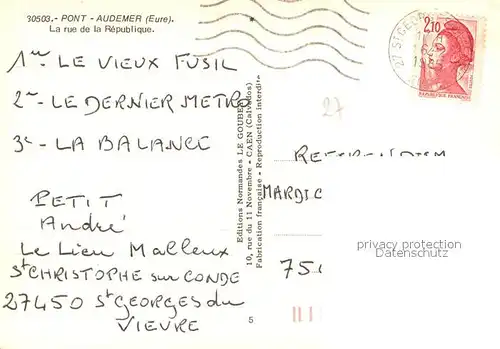 30503.- PONT - AUDEMER (Eure).
La rue de la République.
1er LE VIEUX FUSIL
2e - LE DERNIER METRO
3e - LA BALANCE
PETIT
André
Le Lieu Malleux
St CHRISTOPHE sur CONDE
27450 St GEORGES du
VIEVRE
Editions Normandes LE GOUBEY
10, rue du 11 Novembre - CAEN (Calvados)
Fabrication française - Reproduction interdite
5
27
2,10
REPUBLIQUE FRANÇAISE
27 ST GEOR
MARDIC
751
privacy protection
Datenschutz